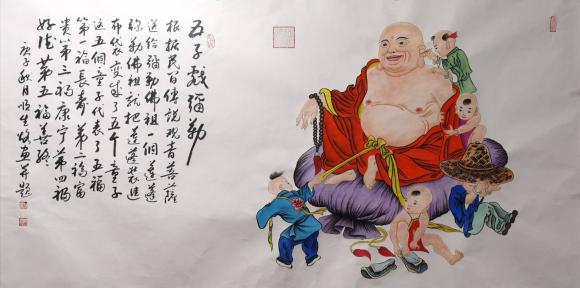 五子戲彌勒
根据民间傳說观音菩薩
送给弥勒佛祖一個蓮蓬
弥勒佛祖就把蓮蓬装進
布袋变成了五个童子
这五個童子代表了五福
第一福長壽第二福富
贵第三福康宁第四福
好德第五福善终
庚子秋月恒生敬画并题